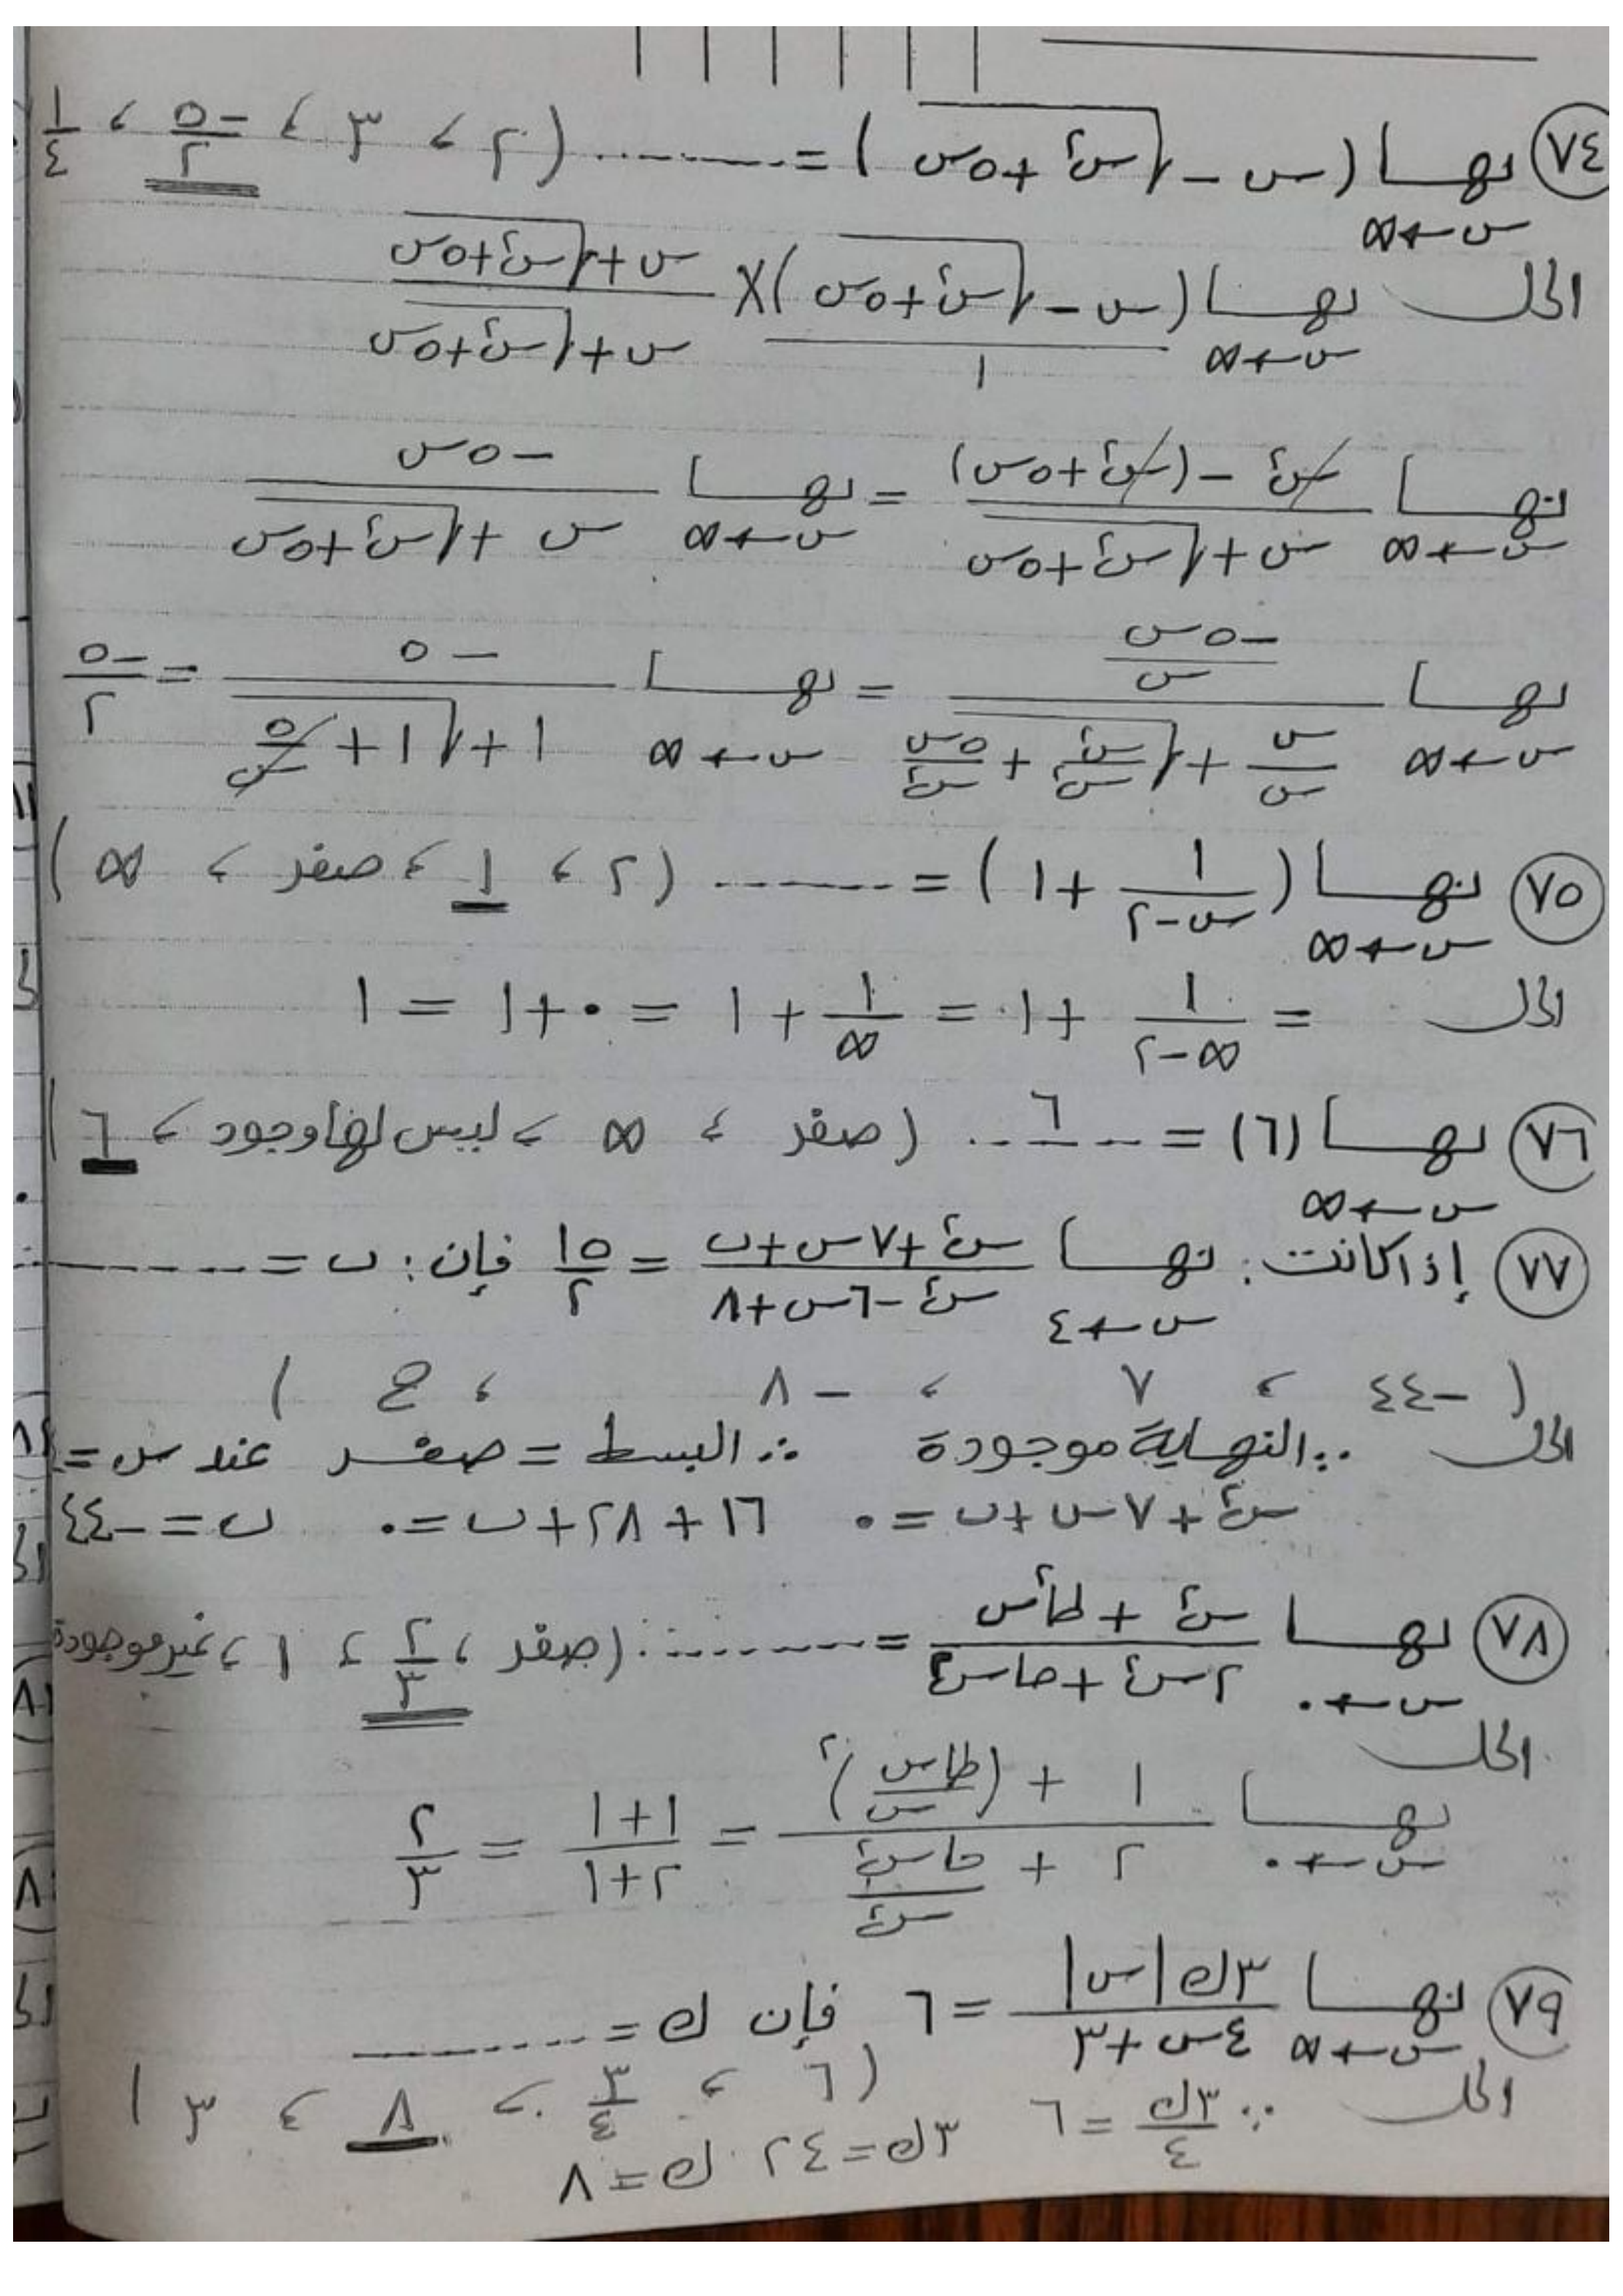 (٧٤) نهـــا (س - √(س² + ٥س)) = ......... (٢ ، ٣ ، -٥/٢ ، ١/٤
س←∞
الحل نهـــا (س - √(س² + ٥س))/١ × (س + √(س² + ٥س))/(س + √(س² + ٥س))
س←∞
نهـــا (س² - (س² + ٥س))/(س + √(س² + ٥س)) = نهـــا (-٥س)/(س + √(س² + ٥س))
س←∞ س←∞
نهـــا (-٥س/س)/(س/س + √(س²/س² + ٥س/س²)) = نهـــا (-٥)/(١ + √(١ + ٥/س)) = -٥/٢
س←∞ س←∞
(٧٥) نهـــا (١/(س-٢) + ١) = ......... (٢ ، ١ ، صفر ، ∞)
س←∞
الحل = ١/(∞-٢) + ١ = ١/∞ + ١ = ٠ + ١ = ١
(٧٦) نهـــا (٦) = ...٦... (صفر ، ∞ ، ليس لها وجود ، ٦)
س←∞
(٧٧) إذا كانت : نهـــا (س² + ٧س + ب)/(س² - ٦س + ٨) = ١٥/٢ فإن : ب = .........
س←٤
( -٤٤ ، ٧ ، -٨ ، ع )
الحل ∵ النهاية موجودة ∴ البسط = صفر عند س =
س² + ٧س + ب = ٠ ١٦ + ٢٨ + ب = ٠ ب = -٤٤
(٧٨) نهـــا (س² + طا²س)/(٢س² + حاس²) = ......... (صفر ، ٢/٣ ، ١ ، غير موجودة
س←٠
الحل
نهـــا (١ + (طاس/س)²)/(٢ + حاس²/س²) = (١+١)/(٢+١) = ٢/٣
س←٠
(٧٩) نهـــا (٣ك|س|)/(٤س + ٣) = ٦ فإن ك = .........
س←∞
(٦ ، ٣/٤ ، ٨ ، ٣)
الحل ∵ ٣ك/٤ = ٦ ٣ك = ٢٤ ك = ٨